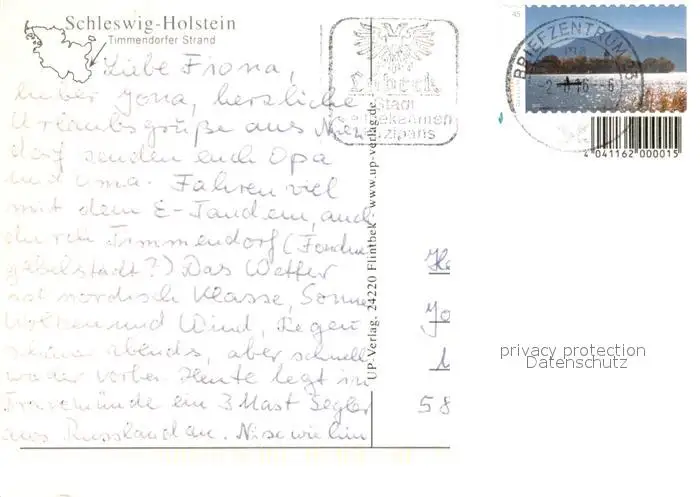 Schleswig-Holstein
Timmendorfer Strand
Liebe Fiona,
lieber Jona, herzliche
Urlaubsgrüße aus Nien
dorf senden euch Opa
und Oma. Fahren viel
mit dem E-Tandem, auch
durch Timmendorf (
gabelstadt?) Das Wetter
ist nordisch Klasse, Sonne
Wolken und Wind, Regen
abends, aber schnell
wieder vorbei. Heute legt in
Travemünde ein 3 Mast Segler
aus Russland an.
UP-Verlag, 24220 Flintbek · www.up-verlag.de
Lübeck
Stadt
BRIEFZENTRUM 23
45
4 041162 000015
Jo
58
privacy protection
Datenschutz